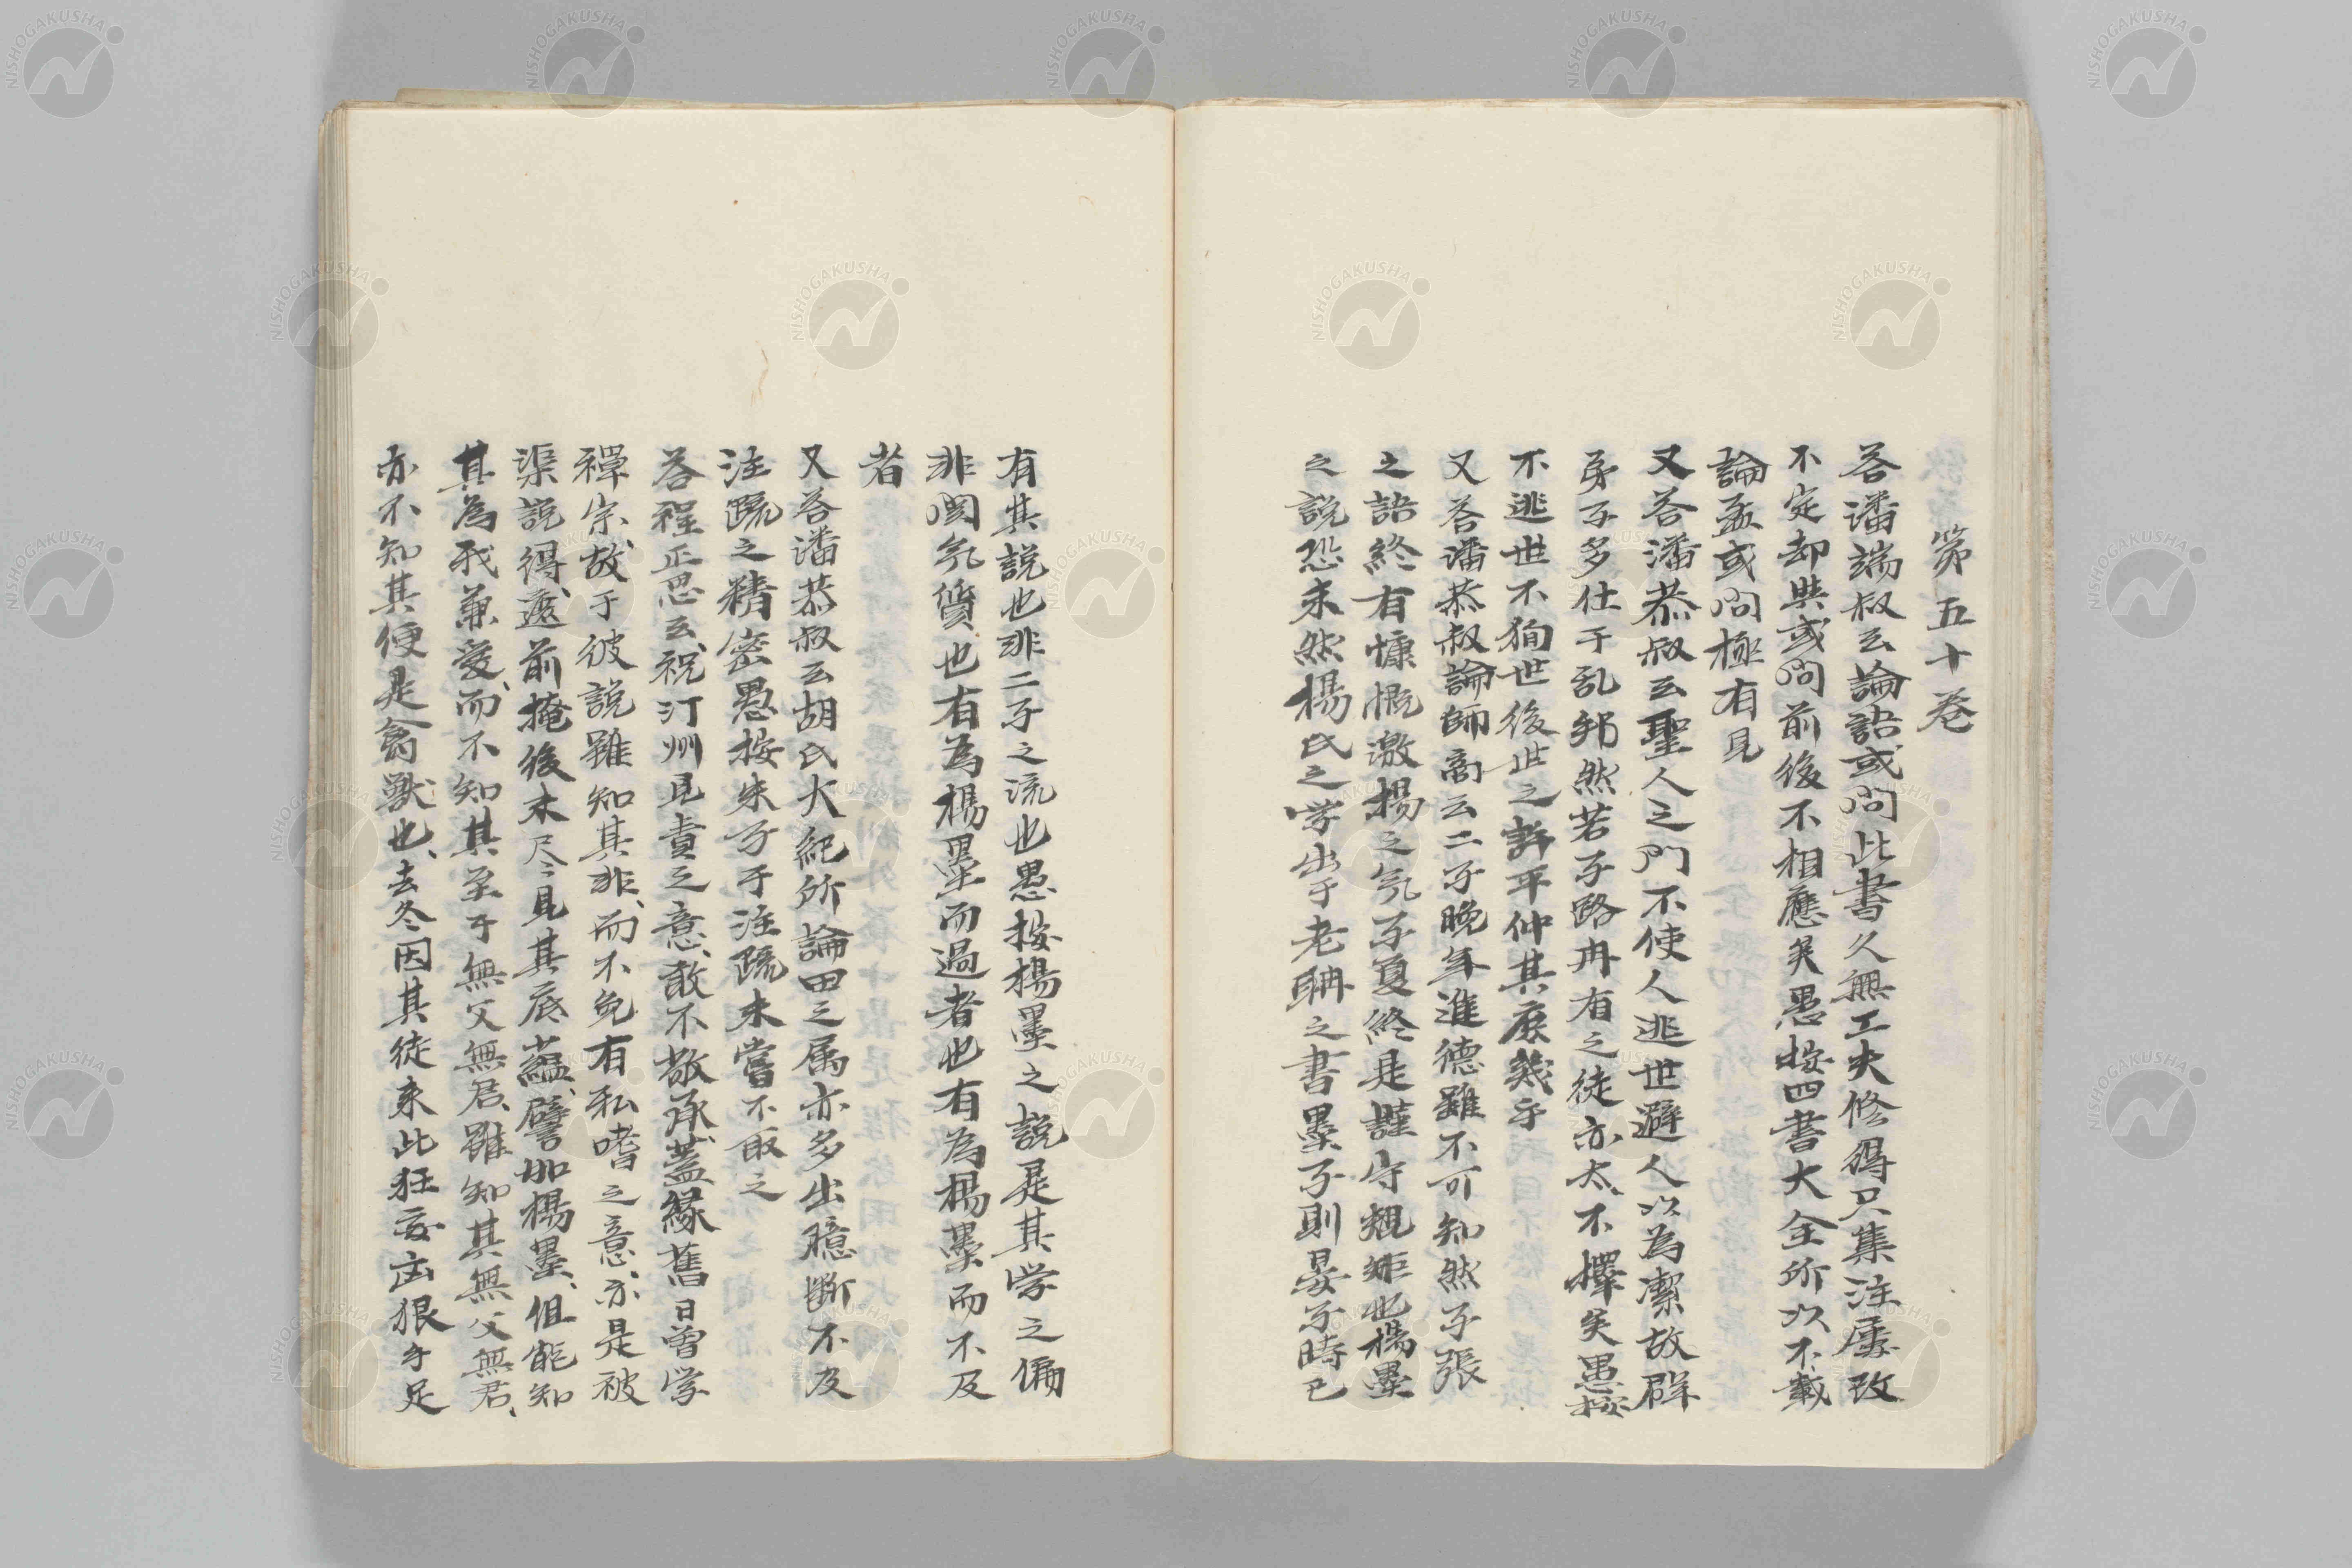 第五十巻
答潘端叔云論語或問此書久無工夫修得只集注屡改
不定却與或問前後不相應矣愚按四書大全所以不載
論孟或問極有見
又答潘恭叔云聖人之門不使人逃世避人以為潔故群
弟子多仕于乱邦然若子路冉有之徒亦太不擇矣愚按
不逃世不狥世後世之許平仲其庻幾乎
又答潘恭叔論師商云二子晩年進德雖不可知然子張
之語終有慷慨激揚之気子夏終是謹守規矩也楊墨
之説恐未然楊氏之学出于老耼之書墨子則晏子時已
有其説也非二子之流也愚按楊墨之説是其学之偏
非関気質也有為楊墨而過者也有為楊墨而不及
者
又答潘恭叔云胡氏大紀所論田之属亦多出臆断不及
注䟽之精密愚按朱子于注䟽未嘗不取之
答程正思云祝汀州見責之意敢不敬承蓋縁舊日曾学
禪宗故于彼説雖知其非而不免有私嗜之意亦是被
渠説得遮前掩後未尽見其底蘊譬如楊墨但能知
其為我兼愛而不知其至于無父無君雖知其無父無君
亦不知其便是禽獣也去冬因其徒来此狂妄凶狠手足
NISHOGAKUSHA